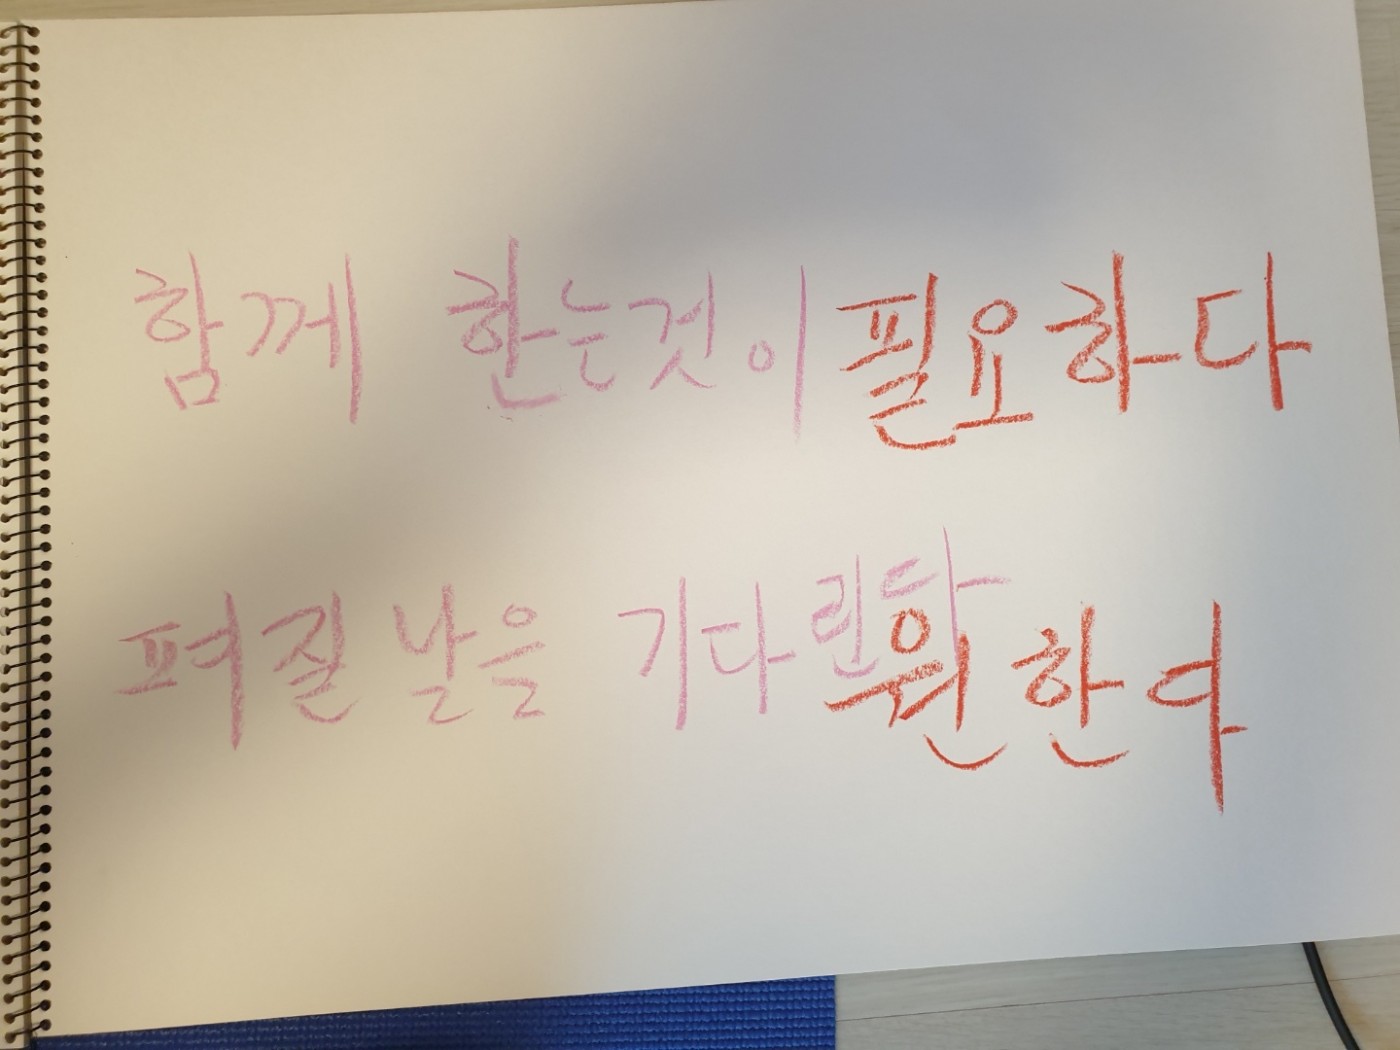 함께 한는것이 필요하다
펴질 날을 기다린다 원한여